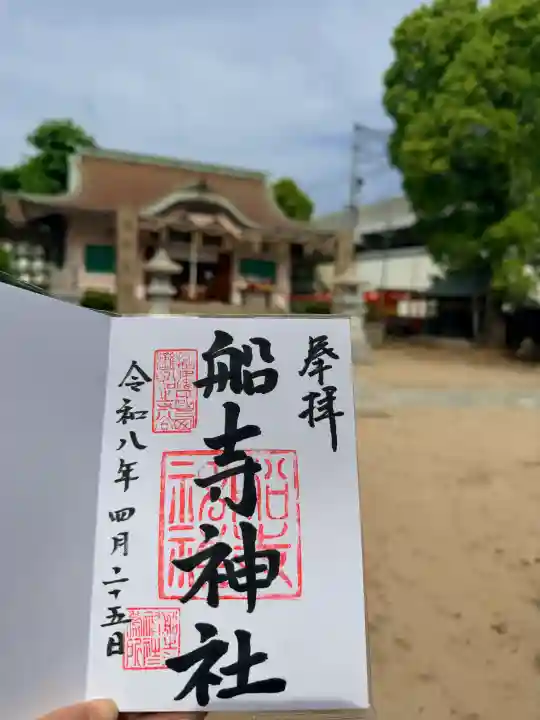 奉拝
船寺神社
令和八年四月二十五日